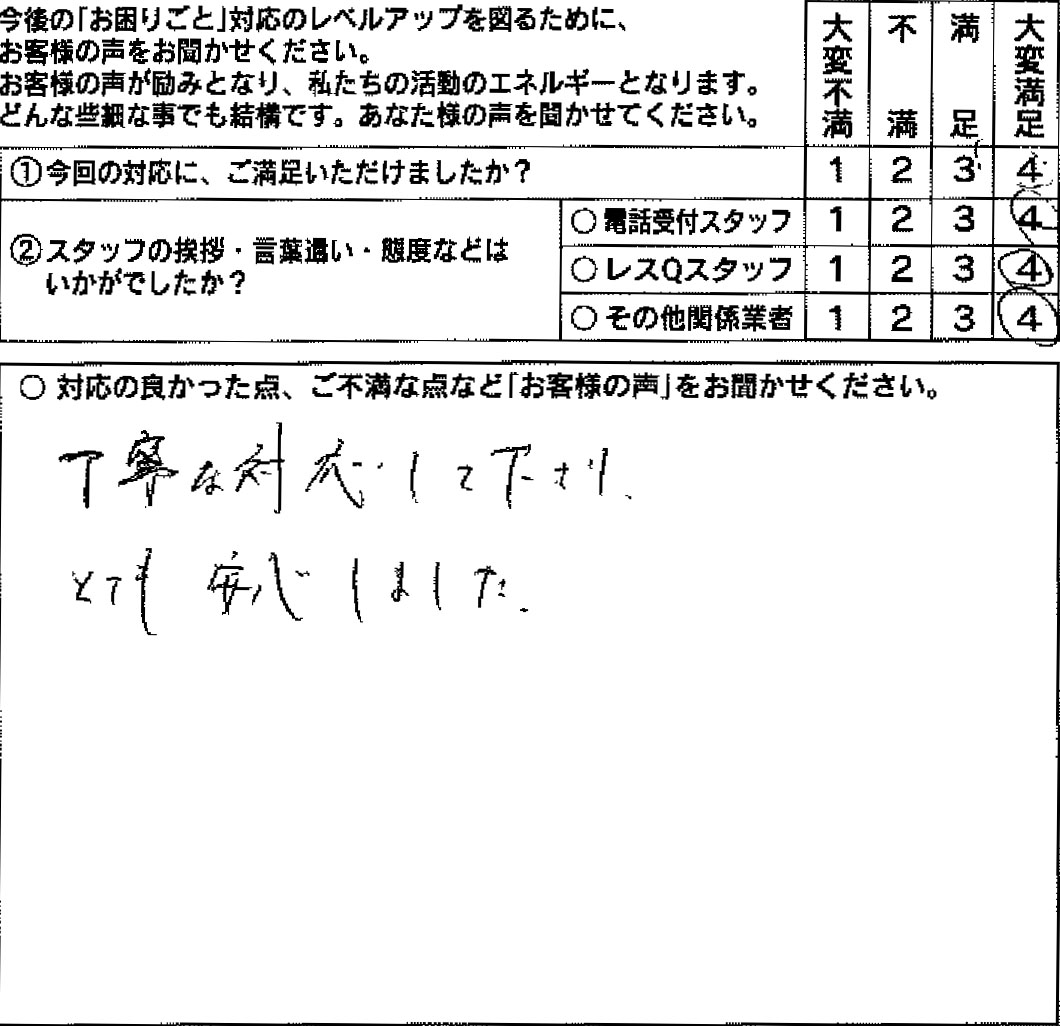 今後の「お困りごと」対応のレベルアップを図るために、
お客様の声をお聞かせください。
お客様の声が励みとなり、私たちの活動のエネルギーとなります。
どんな些細な事でも結構です。あなた様の声を聞かせてください。
大変不満 不満 満足 大変満足
①今回の対応に、ご満足いただけましたか? 1 2 3 4
②スタッフの挨拶・言葉遣い・態度などは
いかがでしたか?
○電話受付スタッフ 1 2 3 4
○レスQスタッフ 1 2 3 4
○その他関係業者 1 2 3 4
○ 対応の良かった点、ご不満な点など「お客様の声」をお聞かせください。
丁寧な対応して下さり、
とても安心しました。